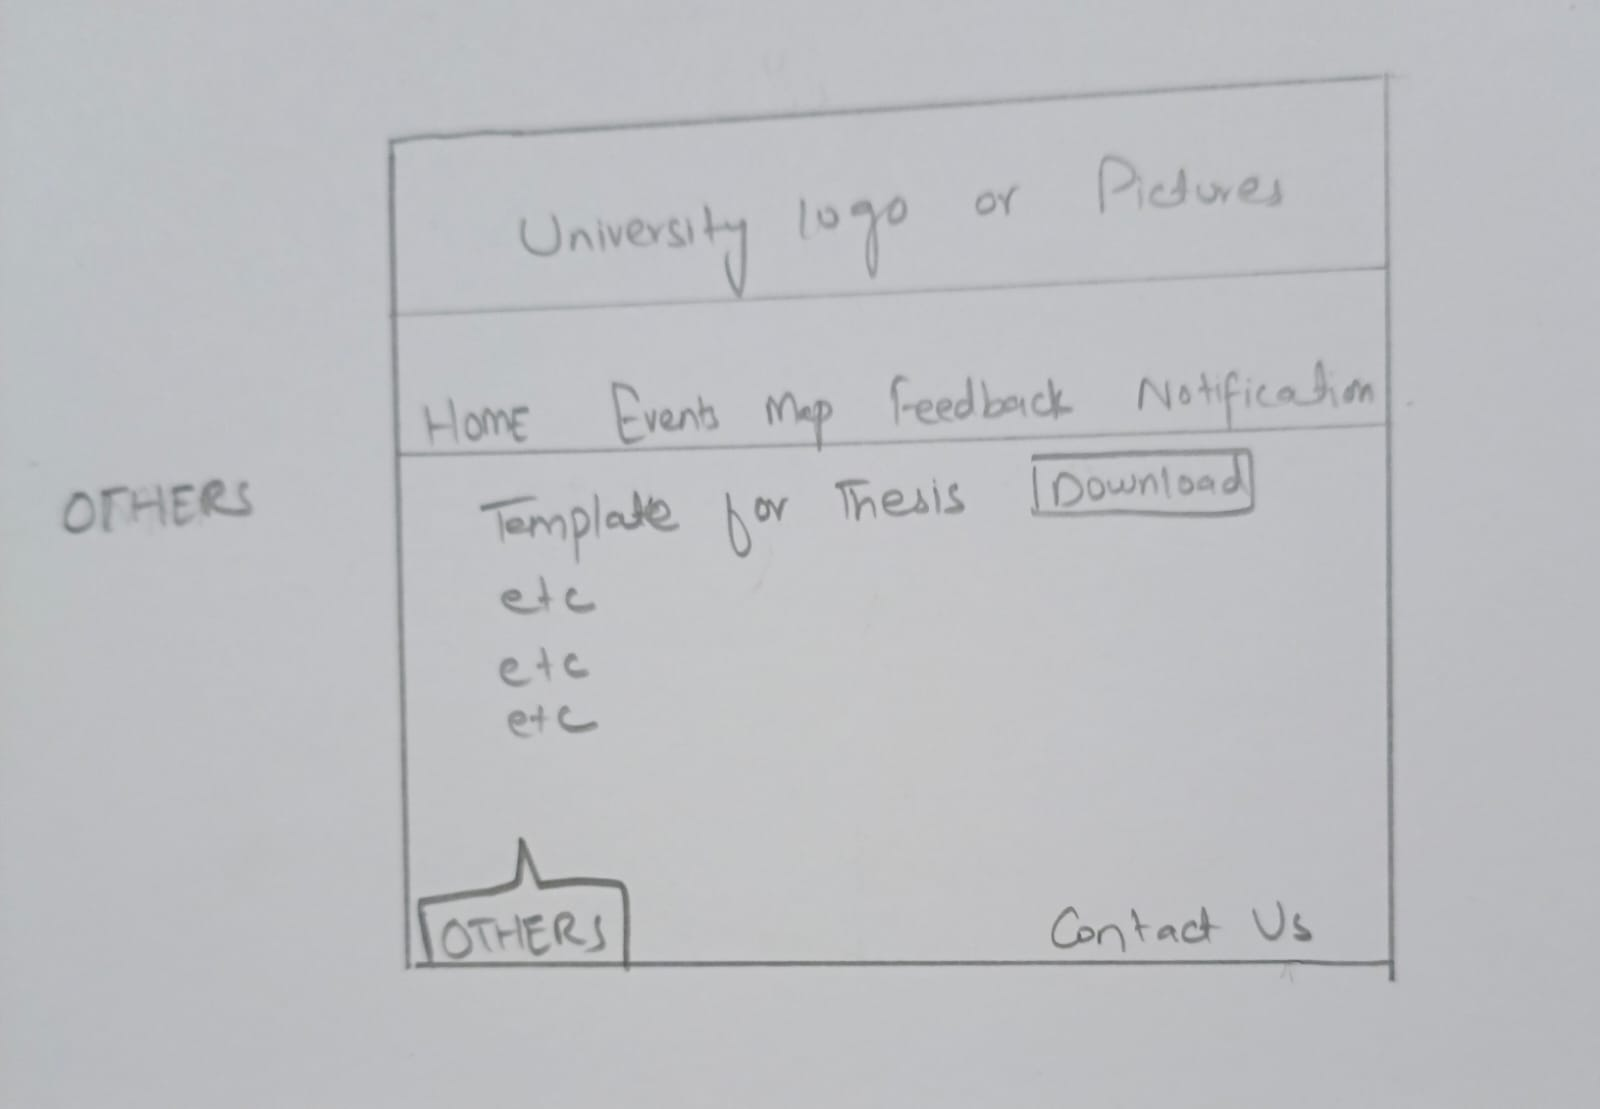 University logo or Pictures
Home Events Map Feedback Notification
OTHERS
Template for Thesis Download
etc
etc
etc
OTHERS
Contact Us